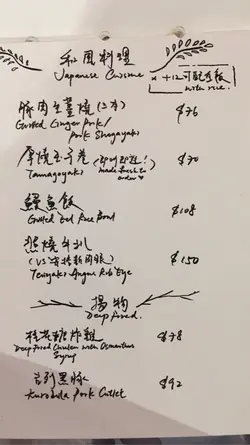 和風料理
Japanese Cuisine
* +12可配定飯
with rice.
豚肉生薑燒(2本) $76
Grilled Ginger Pork/
Pork Shogayaki
厚燒玉子卷 (即叫即整!) $70
Tamagoyaki made fresh to
order
鰻魚飯 $108
Grilled Eel Rice Bowl
照燒牛扒 $150
(US安格斯肉眼)
Teriyaki Angus Rib Eye
揚物
Deep fried.
桂花糖炸雞 $78
Deep fried Chicken with Osmanthus
Syrup
吉列黑豚 $92
Kurobuta Pork Cutlet